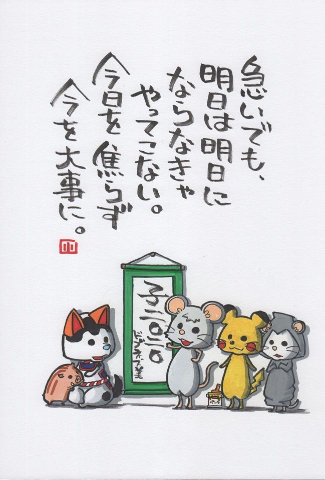 急いでも、
明日は明日に
ならなきゃ
やってこない。
今日を焦らず
今を大事に。